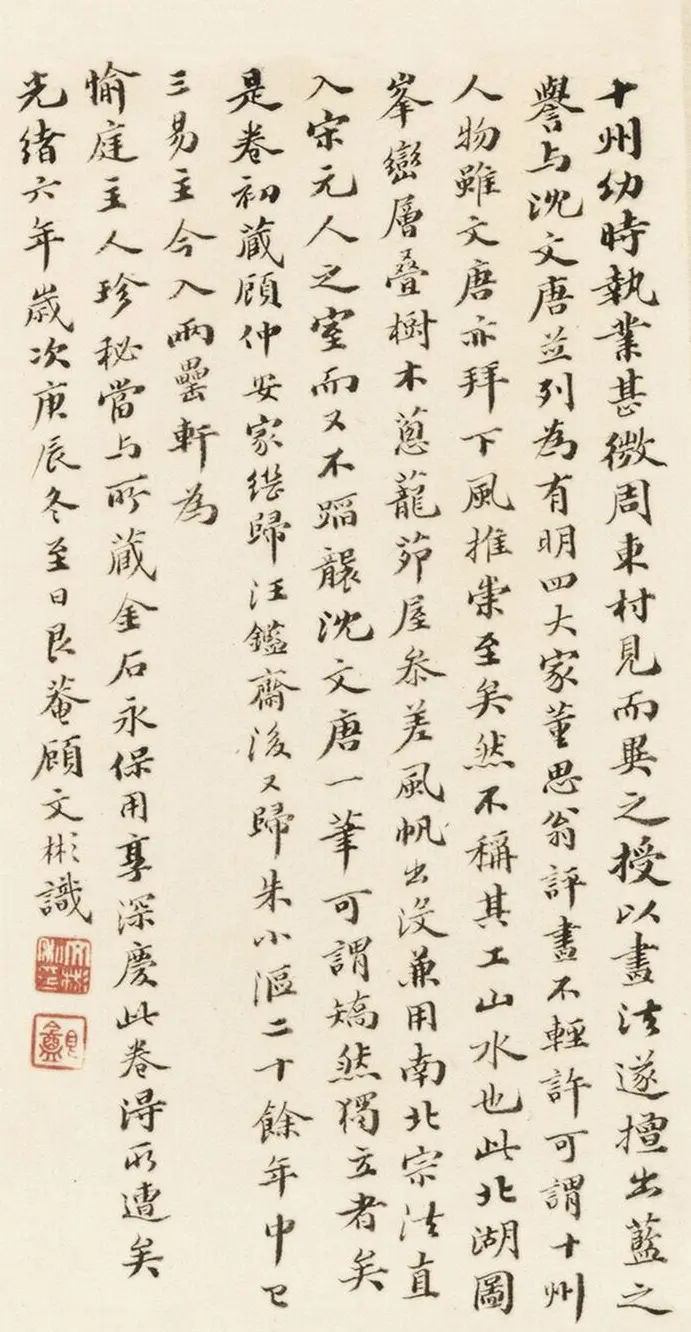 十州幼時執業甚微周東村見而異之授以畫法遂擅出藍之
譽与沈文唐並列為有明四大家董思翁評畫不輕許可謂十州
人物雖文唐亦拜下風推崇至矣然不稱其工山水也此北湖圖
峯巒層疊樹木蔥蘢茆屋叅差風帆出沒兼用南北宗法直
入宋元人之室而又不蹈襲沈文唐一筆可謂矯然獨立者矣
是卷初藏顧仲安家継歸汪鑑齋後又歸朱小漚二十餘年中已
三易主今入兩罍軒為
愉庭主人珍秘當与所藏金石永保用享深慶此卷得所遭矣
光緒六年歲次庚辰冬至日艮菴顧文彬識